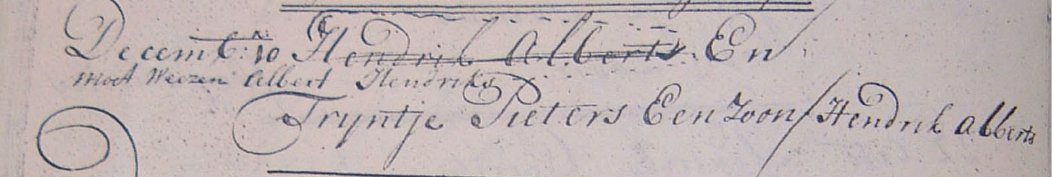 Decemb: 10 Hendrik Alberts En
moet Weezen Albert Hendriks
Tryntje Pieters Een Zoon / Hendrik Alberts